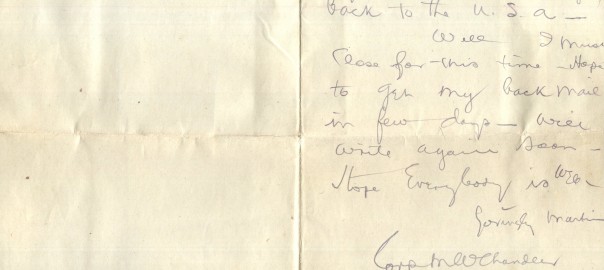 back to the U.S.A —
Well I must
Close for this time - Hope
to get my back mail
in few days — will
write again soon -
Hope Everybody is well -
Lovingly Martin
Corp M W Chandler